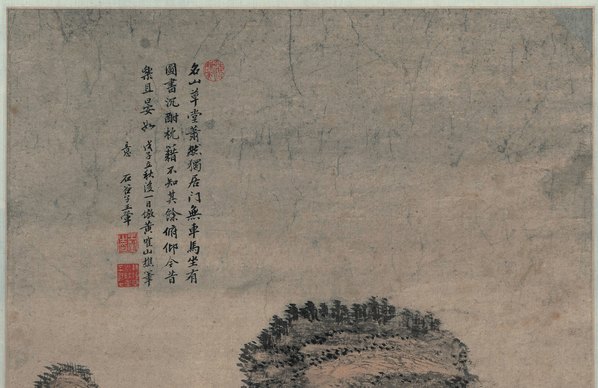 名山草堂蕭然獨居門無車馬坐有
圖書沉酣枕籍不知其餘俯仰今昔
樂且晏如 戊子立秋後一日倣黃鶴山樵筆
意 石谷子王翬